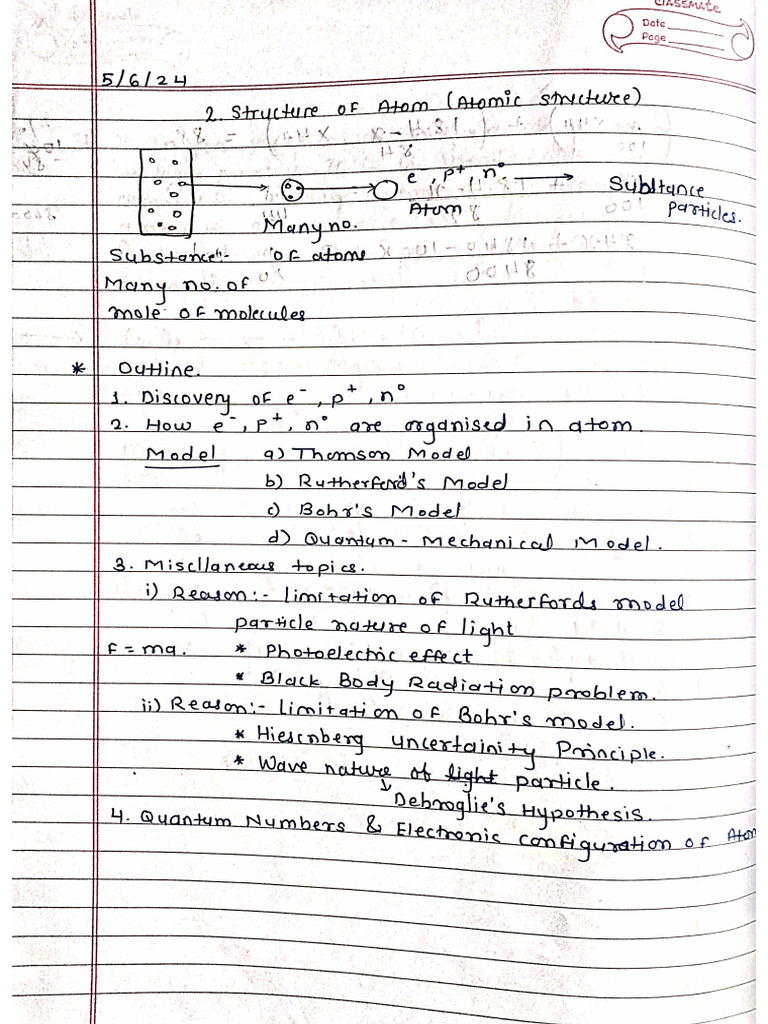 CLASSMATE
Date
Page
5/6/24
2. Structure of Atom (Atomic structure)
e , p⁺ , n⁰
Substance
particles.
Atom
Many no.
Substance:- of atoms
Many no. of
mole of molecules
* Outline.
1. Discovery of e⁻, p⁺, n⁰
2. How e⁻, p⁺, n⁰ are organised in atom
Model a) Thomson Model
b) Rutherford's Model
c) Bohr's Model
d) Quantum - Mechanical Model.
3. Miscllaneous topics.
i) Reason:- limitation of Rutherfords model
particle nature of light
F = ma. * Photoelectric effect
* Black Body Radiation problem.
ii) Reason:- limitation of Bohr's model.
* Hiesenberg uncertainity Principle.
* Wave nature of light particle.
↓ Debroglie's Hypothesis.
4. Quantum Numbers & Electronic configuration of Atom